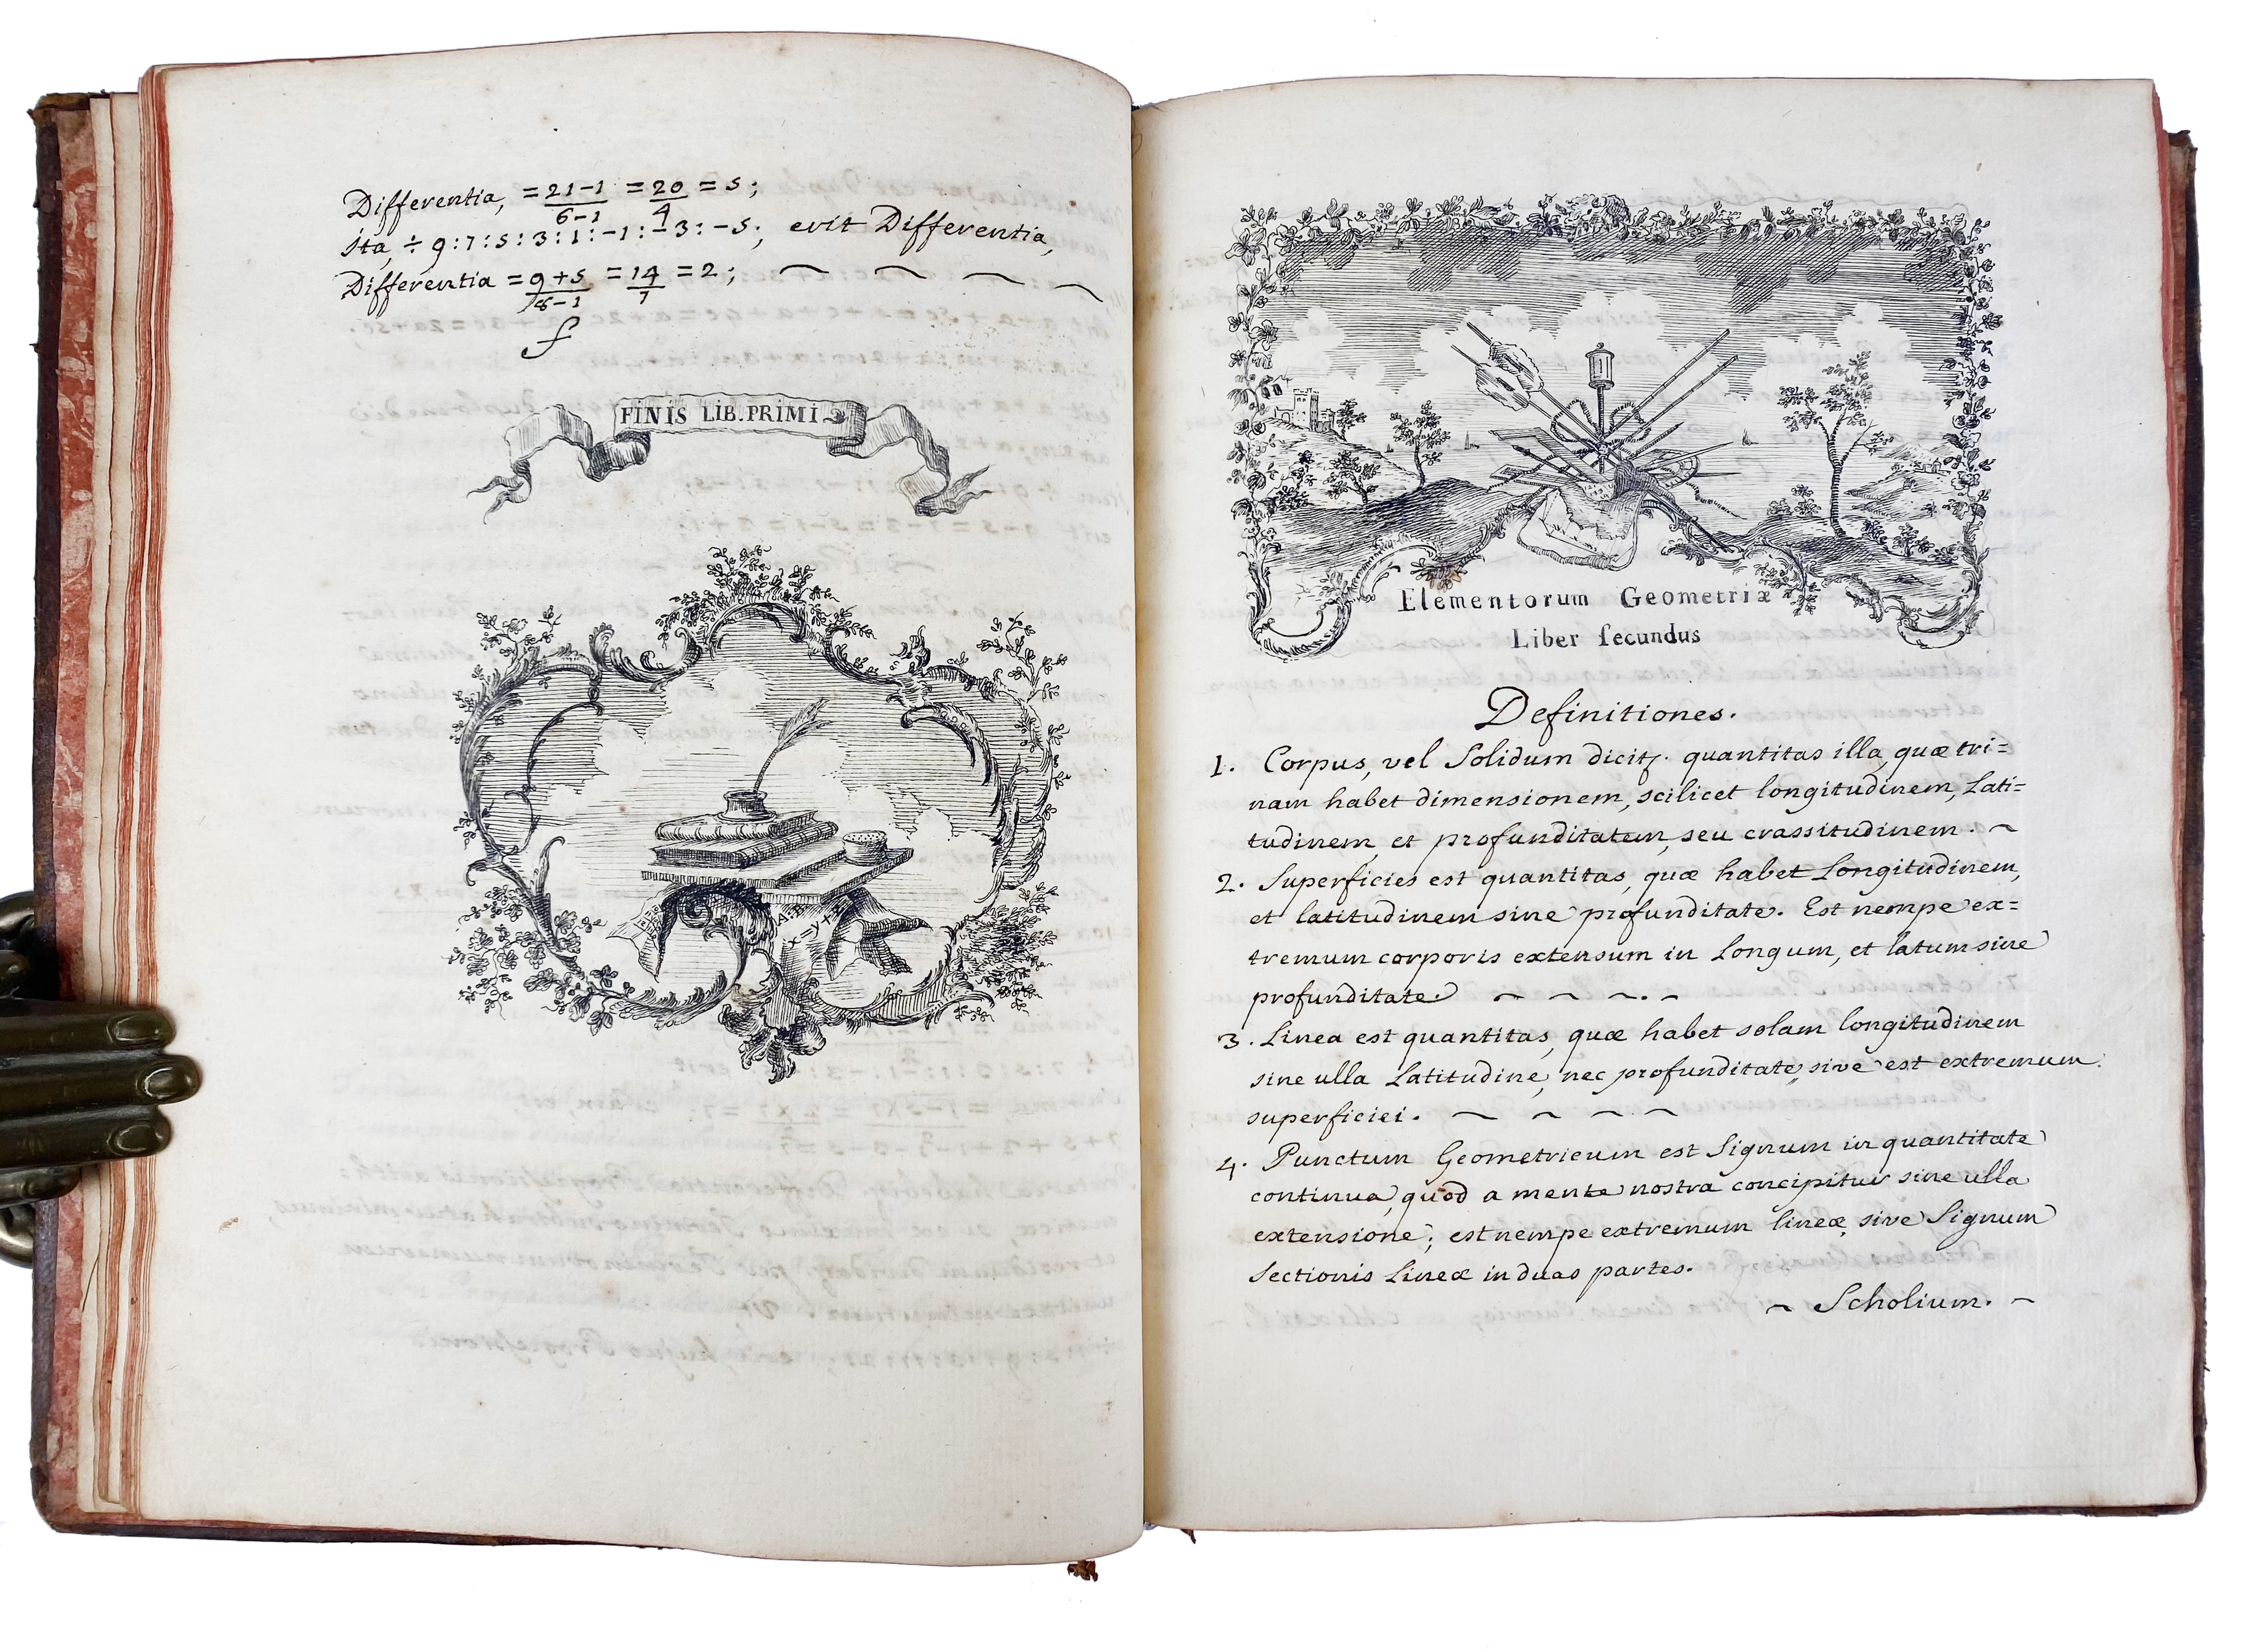 Differentia, = 21-1/6-1 = 20/4 = 5;
ita, ÷ 9:7:5:3:1:-1:-3:-5; erit Differentia,
Differentia = 9+5/8-1 = 14/7 = 2;
FINIS LIB. PRIMI
A:B
x=y+z
Elementorum Geometriæ
Liber secundus
Definitiones.
1. Corpus, vel Solidum dicitz. quantitas illa, quæ tri=
nam habet dimensionem, scilicet longitudinem, Lati=
tudinem, et profunditatem, seu crassitudinem.
2. Superficies est quantitas, quæ habet Longitudinem,
et latitudinem sine profunditate. Est nempe ex=
tremum corporis extensum in Longum, et latum sine
profunditate.
3. Linea est quantitas, quæ habet solam longitudinem
sine ulla Latitudine, nec profunditate, sive est extremum
superficiei.
4. Punctum Geometricum est Signum in quantitate
continua, quod a mente nostra concipitur sine ulla
extensione; est nempe extremum lineæ, sive Signum
Sectionis Lineæ in duas partes.
Scholium.